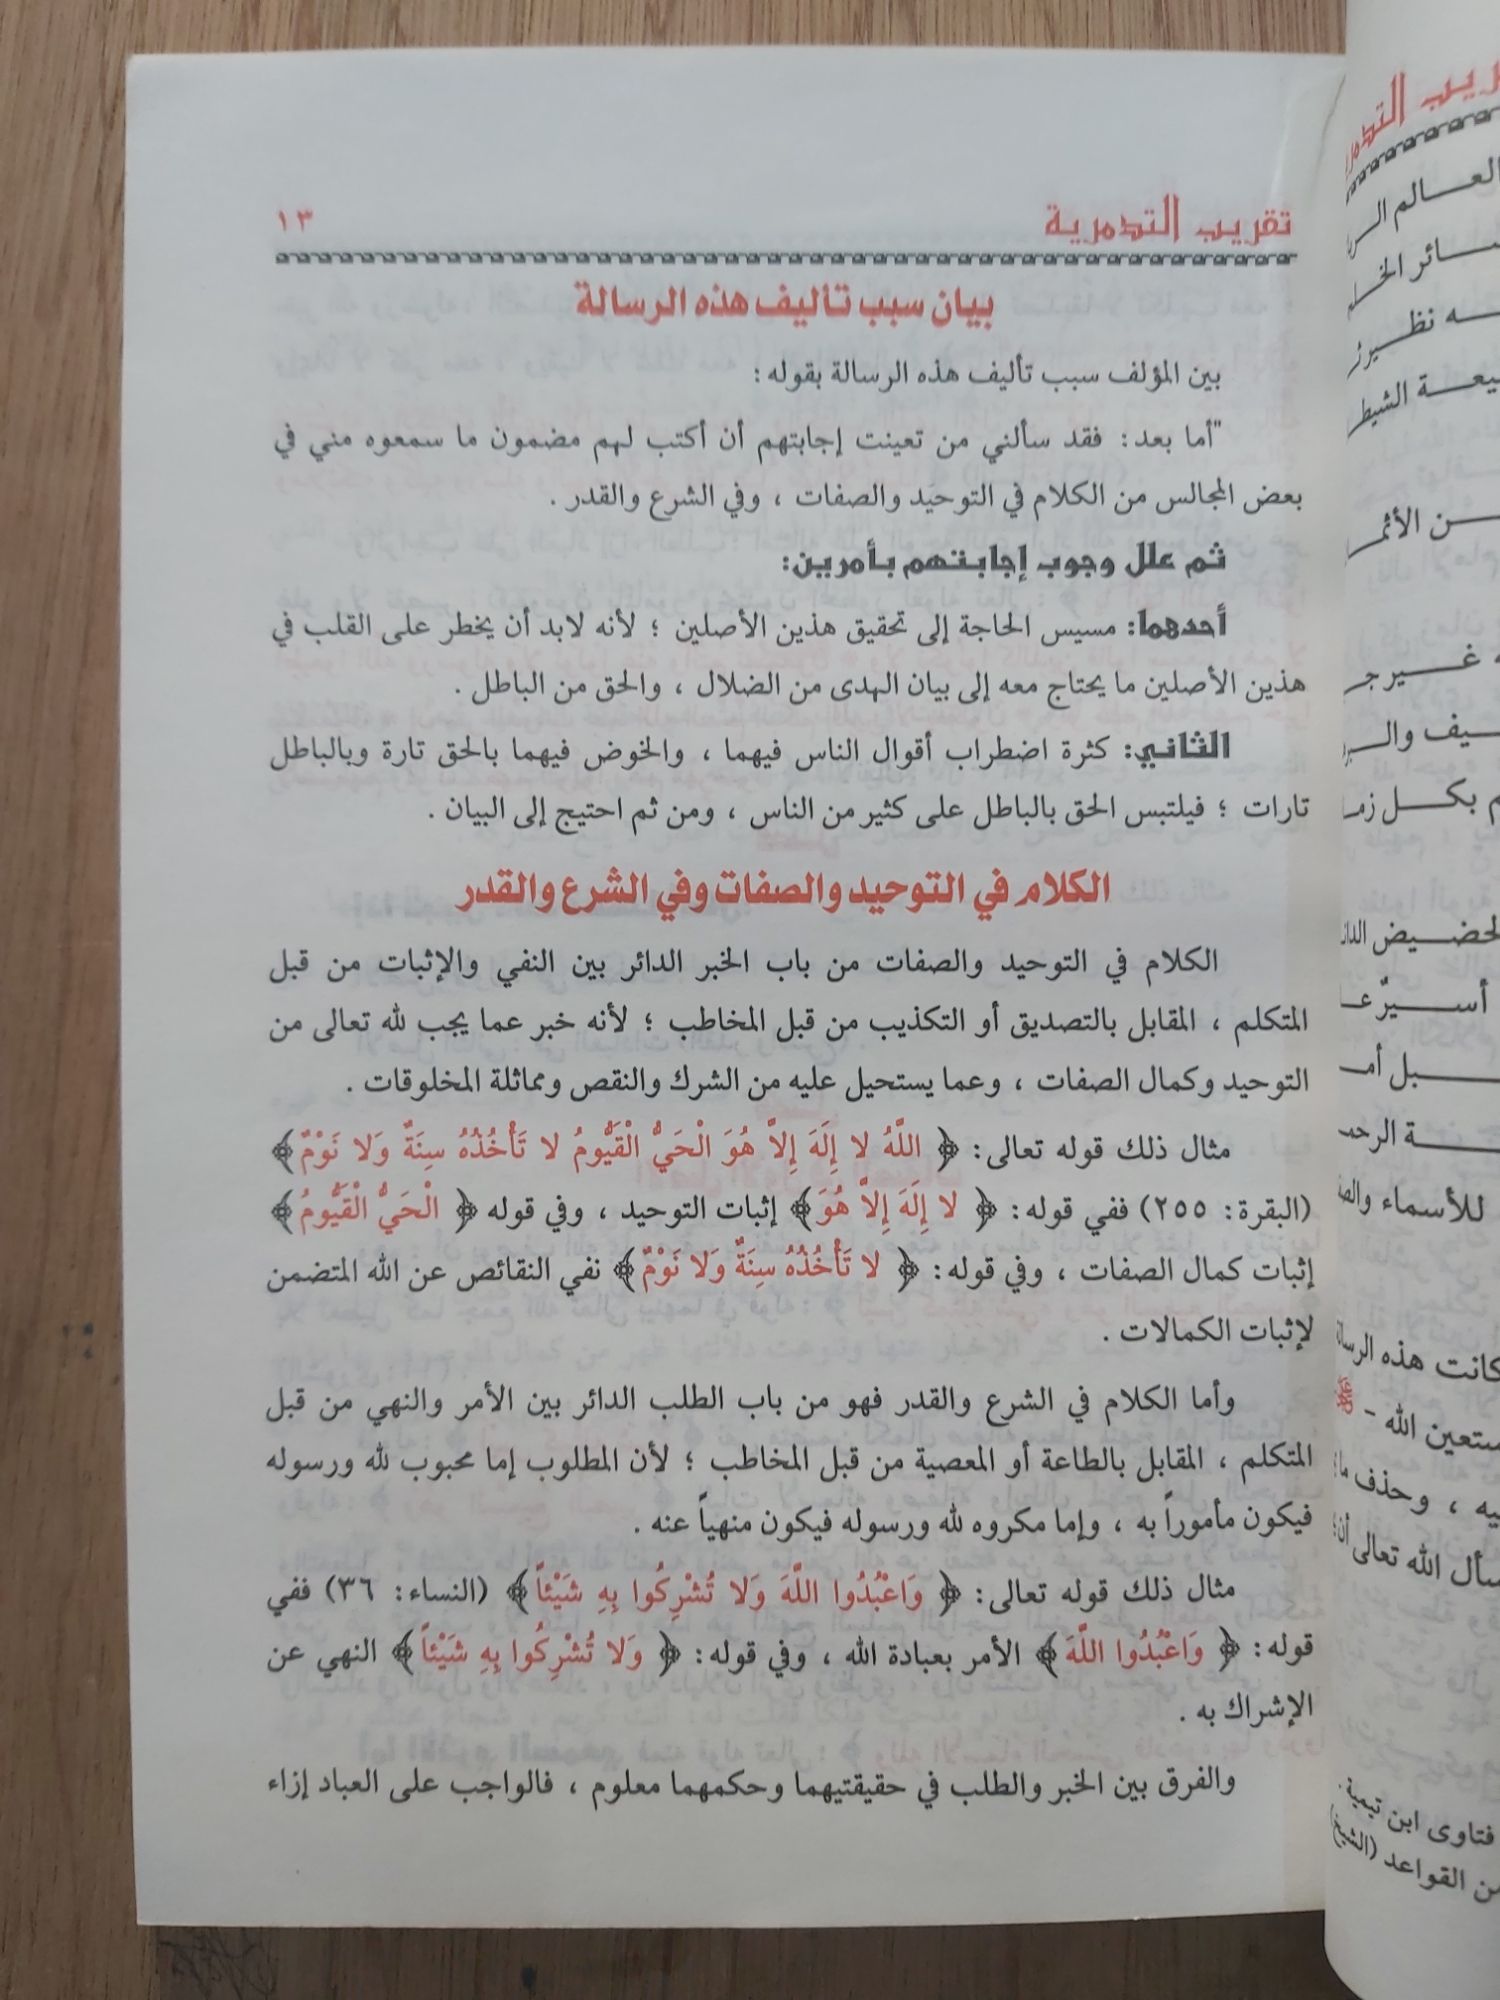 تقريب التدمرية ١٣
بيان سبب تأليف هذه الرسالة
بين المؤلف سبب تأليف هذه الرسالة بقوله :
"أما بعد : فقد سألني من تعينت إجابتهم أن أكتب لهم مضمون ما سمعوه مني في
بعض المجالس من الكلام في التوحيد والصفات ، وفي الشرع والقدر .
ثم علل وجوب إجابتهم بأمرين:
أحدهما: مسيس الحاجة إلى تحقيق هذين الأصلين ؛ لأنه لابد أن يخطر على القلب في
هذين الأصلين ما يحتاج معه إلى بيان الهدى من الضلال ، والحق من الباطل .
الثاني: كثرة اضطراب أقوال الناس فيهما ، والخوض فيهما بالحق تارة وبالباطل
تارات ؛ فيلتبس الحق بالباطل على كثير من الناس ، ومن ثم احتيج إلى البيان .
الكلام في التوحيد والصفات وفي الشرع والقدر
الكلام في التوحيد والصفات من باب الخبر الدائر بين النفي والإثبات من قبل
المتكلم ، المقابل بالتصديق أو التكذيب من قبل المخاطب ؛ لأنه خبر عما يجب لله تعالى من
التوحيد وكمال الصفات ، وعما يستحيل عليه من الشرك والنقص ومماثلة المخلوقات .
مثال ذلك قوله تعالى: ﴿ اللَّهُ لا إِلَهَ إِلاَّ هُوَ الْحَيُّ الْقَيُّومُ لا تَأْخُذُهُ سِنَةٌ وَلا نَوْمٌ﴾
(البقرة: ٢٥٥) ففي قوله: ﴿ لا إِلَهَ إِلاَّ هُوَ﴾ إثبات التوحيد ، وفي قوله ﴿ الْحَيُّ الْقَيُّومُ﴾
إثبات كمال الصفات ، وفي قوله: ﴿ لا تَأْخُذُهُ سِنَةٌ وَلا نَوْمٌ﴾ نفي النقائص عن الله المتضمن
لإثبات الكمالات .
وأما الكلام في الشرع والقدر فهو من باب الطلب الدائر بين الأمر والنهي من قبل
المتكلم ، المقابل بالطاعة أو المعصية من قبل المخاطب ؛ لأن المطلوب إما محبوب لله ورسوله
فيكون مأموراً به ، وإما مكروه لله ورسوله فيكون منهياً عنه .
مثال ذلك قوله تعالى: ﴿ وَاعْبُدُوا اللَّهَ وَلا تُشْرِكُوا بِهِ شَيْئاً﴾ (النساء: ٣٦) ففي
قوله: ﴿ وَاعْبُدُوا اللَّهَ﴾ الأمر بعبادة الله ، وفي قوله: ﴿ وَلا تُشْرِكُوا بِهِ شَيْئاً﴾ النهي عن
الإشراك به .
والفرق بين الخبر والطلب في حقيقتيهما وحكمهما معلوم ، فالواجب على العباد إزاء